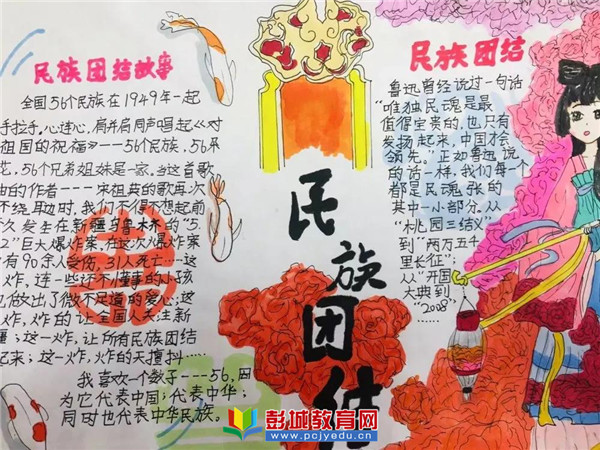 民族团结故事
全国56个民族在1949年一起
手拉手,心连心,肩并肩同声唱起《对
祖国的祝福》———56个民族,56
花,56个兄弟姐妹是一家。当这首歌
曲的作者———宋祖英的歌再次
不绝耳边时,我们不得不想起前
久发生在新疆乌鲁木齐的"5
2"巨大爆炸案,在这次爆炸案
有90余人受伤,31人死亡……这
炸,连一些还不懂事的小孩
做出了微不足道的爱心;这
炸,炸的让全国人关注新
疆;这一炸,让所有民族团结
起来;这一炸,炸的天擅抖……
我喜欢一个数字———56,因
为它代表中国;代表中华;
同时也代表中华民族。
民族团结
民族团结
鲁迅曾经说过一句话
"唯独民魂是最
值得宝贵的,也只有
发扬起来,中国才会
领先。"正如鲁迅说
的话一样,我们每一个
都是民魂,张的
其中一小部分,从
"桃园三结义"
到"两万五千
里长征";
从"开国
大典到
"2008"
……
彭城教育网
www.pcjyedu.cn